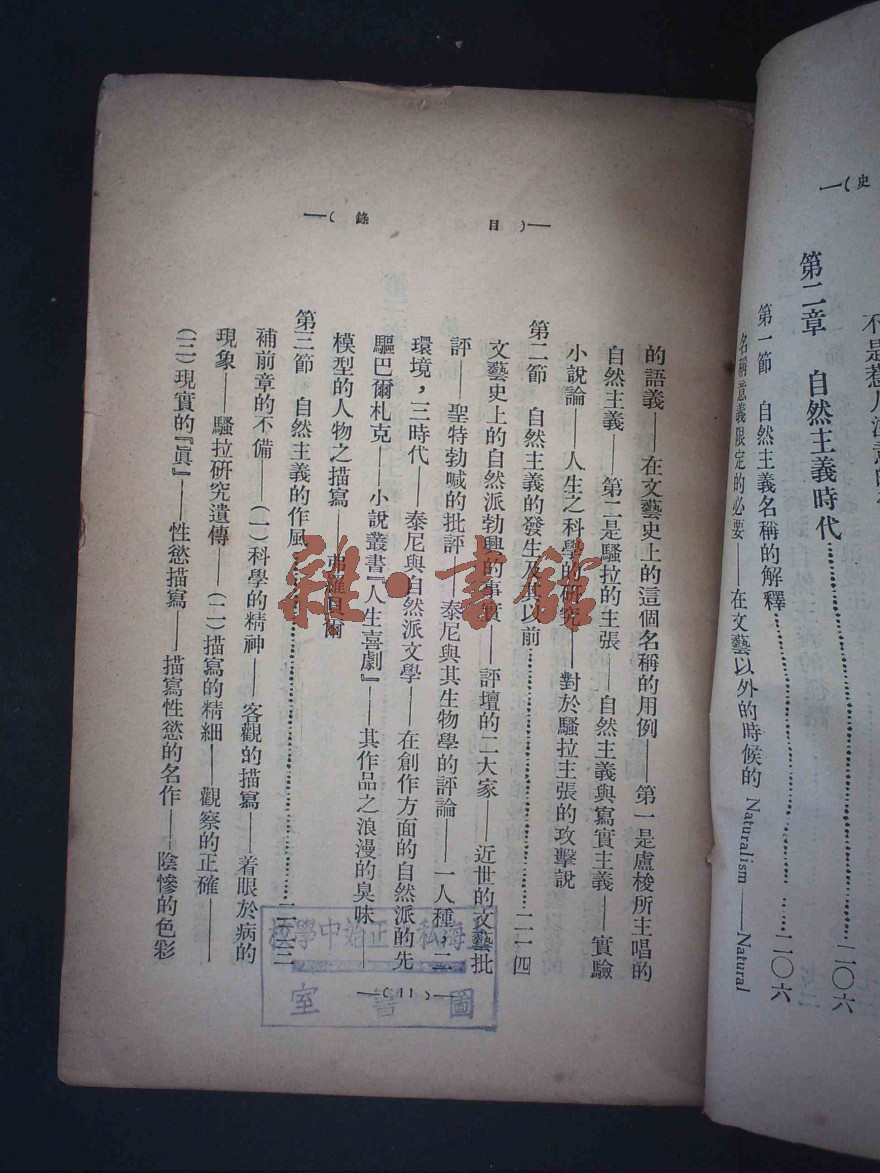 史
第二章 自然主義時代……二〇六
第一節 自然主義名稱的解釋……二〇六
名稱意義限定的必要——在文藝以外的時候的 Naturalism——Natural
目錄
的語義——在文藝史上的這個名稱的用例——第一是盧梭所主唱的
自然主義——第二是騷拉的主張——自然主義與寫實主義——實驗
小說論——人生之科學的研究——對於騷拉主張的攻擊說
第二節 自然主義的發生及其以前……二一四
文藝史上的自然派勃興的事實——評壇的二大家——近世的文藝批
評——聖特勃喊的批評——泰尼與其生物學的評論——一人種,二
環境,三時代——泰尼與自然派文學——在創作方面的自然派的先
驅巴爾札克——小說叢書『人生喜劇』——其作品之浪漫的臭味——
模型的人物之描寫——弗羅貝爾
第三節 自然主義的作風……二二三
補前章的不備——(一)科學的精神——客觀的描寫——着眼於病的
現象——騷拉研究遺傳——(二)描寫的精細——觀察的正確——
(三)現實的『眞』——性慾描寫——描寫性慾的名作——陰慘的色彩
(11)
海私 正始中學校
圖書室
雜·書館